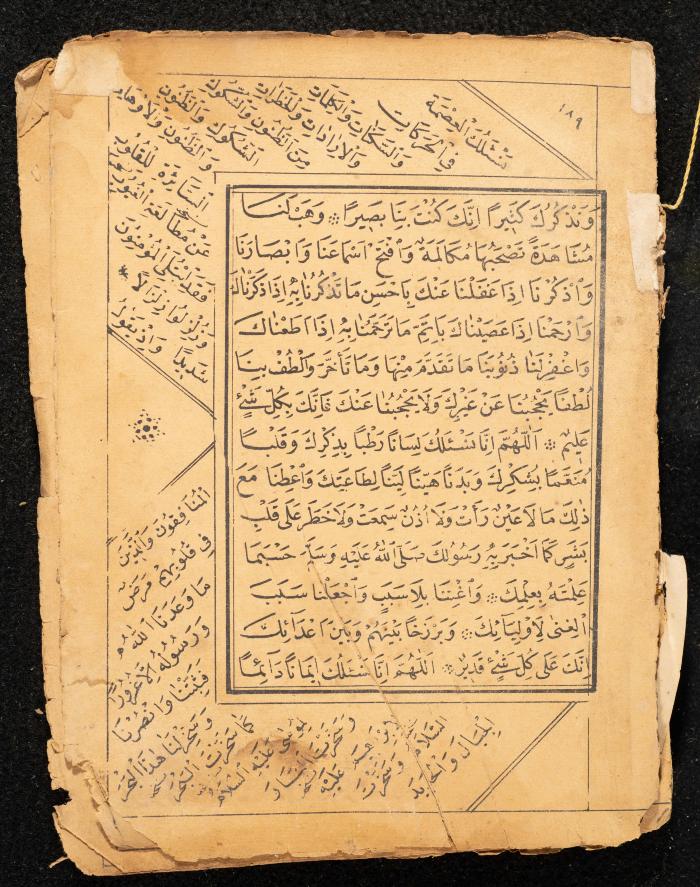 ١٨٩
وَنَذْكُرَكَ كَثِيرًا اِنَّكَ كُنْتَ بِنَا بَصِيرًا ۞ وَهَبْ لَنَا
مُشَاهَدَةً تَصْحَبُهَا مُكَالَمَةٌ وَافْتَحْ اَسْمَاعَنَا وَاَبْصَارَنَا
وَاذْكُرْنَا اِذَا غَفَلْنَا عَنْكَ بِاَحْسَنِ مَا تَذْكُرُنَا بِهٖ اِذَا ذَكَرْنَاكَ
وَارْحَمْنَا اِذَا عَصَيْنَاكَ بِاَتَمِّ مَا تَرْحَمُنَا بِهٖ اِذَا اَطَعْنَاكَ
وَاغْفِرْ لَنَا ذُنُوبَنَا مَا تَقَدَّمَ مِنْهَا وَمَا تَأَخَّرَ وَالْطُفْ بِنَا
لُطْفًا يَحْجُبُنَا عَنْ غَيْرِكَ وَلَا يَحْجُبُنَا عَنْكَ فَاِنَّكَ بِكُلِّ شَيْءٍ
عَلِيمٌ ۞ اَللّٰهُمَّ اِنَّا نَسْئَلُكَ لِسَانًا رَطْبًا بِذِكْرِكَ وَقَلْبًا
مُنَعَّمًا بِشُكْرِكَ وَبَدَنًا هَيِّنًا لَيِّنًا لِطَاعَتِكَ وَاَعْطِنَا مَعَ
ذٰلِكَ مَا لَا عَيْنٌ رَأَتْ وَلَا اُذُنٌ سَمِعَتْ وَلَا خَطَرَ عَلَى قَلْبِ
بَشَرٍ كَمَا اَخْبَرَ بِهٖ رَسُولُكَ صَلَّى اللّٰهُ عَلَيْهِ وَسَلَّمَ حَسْبَمَا
عَلِمْتَهُ بِعِلْمِكَ ۞ وَاَغْنِنَا بِلَا سَبَبٍ وَاجْعَلْنَا سَبَبَ
الْغِنٰى لِاَوْلِيَائِكَ ۞ وَبَرْزَخًا بَيْنَهُمْ وَبَيْنَ اَعْدَائِكَ
اِنَّكَ عَلَى كُلِّ شَيْءٍ قَدِيرٌ ۞ اَللّٰهُمَّ اِنَّا نَسْئَلُكَ اِيمَانًا دَائِمًا
نَسْئَلُكَ الْعِصْمَةَ
فِي الْحَرَكَاتِ
وَالسَّكَنَاتِ وَالْكَلِمَاتِ
وَالْاِرَادَاتِ وَالْخَطَرَاتِ
مِنَ الظُّنُونِ وَالشُّكُوكِ
الشُّكُوكِ وَالظُّنُونِ
وَالظُّنُونِ وَالْاَوْهَامِ
السَّاتِرَةِ لِلْقُلُوبِ
عَنْ مُطَالَعَةِ الْغُيُوبِ
فَقَدِ ابْتُلِيَ الْمُؤْمِنُونَ
وَزُلْزِلُوا زِلْزَالًا
شَدِيدًا وَاِذْ يَقُولُ
الْمُنَافِقُونَ وَالَّذِينَ
فِي قُلُوبِهِمْ مَرَضٌ
مَا وَعَدَنَا اللّٰهُ
وَرَسُولُهُ اِلَّا غُرُورًا
فَثَبِّتْنَا وَانْصُرْنَا
وَسَخِّرْ لَنَا هٰذَا الْبَحْرَ
كَمَا سَخَّرْتَ الْبَحْرَ
لِمُوسٰى عَلَيْهِ السَّلَامُ
وَسَخَّرْتَ النَّارَ
لِاِبْرٰهِيمَ عَلَيْهِ
السَّلَامُ وَسَخَّرْتَ
الْجِبَالَ وَالْحَدِيدَ